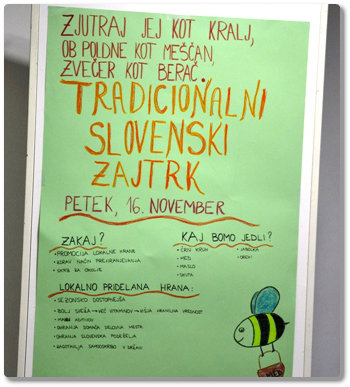 ZJUTRAJ JEJ KOT KRALJ,
OB POLDNE KOT MEŠČAN,
ZVEČER KOT BERAČ.
TRADICIONALNI
SLOVENSKI
ZAJTRK
PETEK, 16. NOVEMBER
ZAKAJ?
• PROMOCIJA LOKALNE HRANE
• ZDRAV NAČIN PREHRANJEVANJA
• SKRB ZA OKOLJE
KAJ BOMO JEDLI?
• ČRNI KRUH
• MED
• MASLO
• SKUTA
• JABOLKA
• OREHI
LOKALNO PRIDELANA HRANA:
• SEZONSKO DOSTOPNEJŠA
• BOLJ SVEŽA → VEČ VITAMINOV → VIŠJA HRANILNA VREDNOST
• MANJ ADITIVOV
• OHRANJA DOMAČA DELOVNA MESTA
• OHRANJA SLOVENSKA PODEŽELJA
• ZAGOTAVLJA SAMOOSKRBO V DRŽAVI